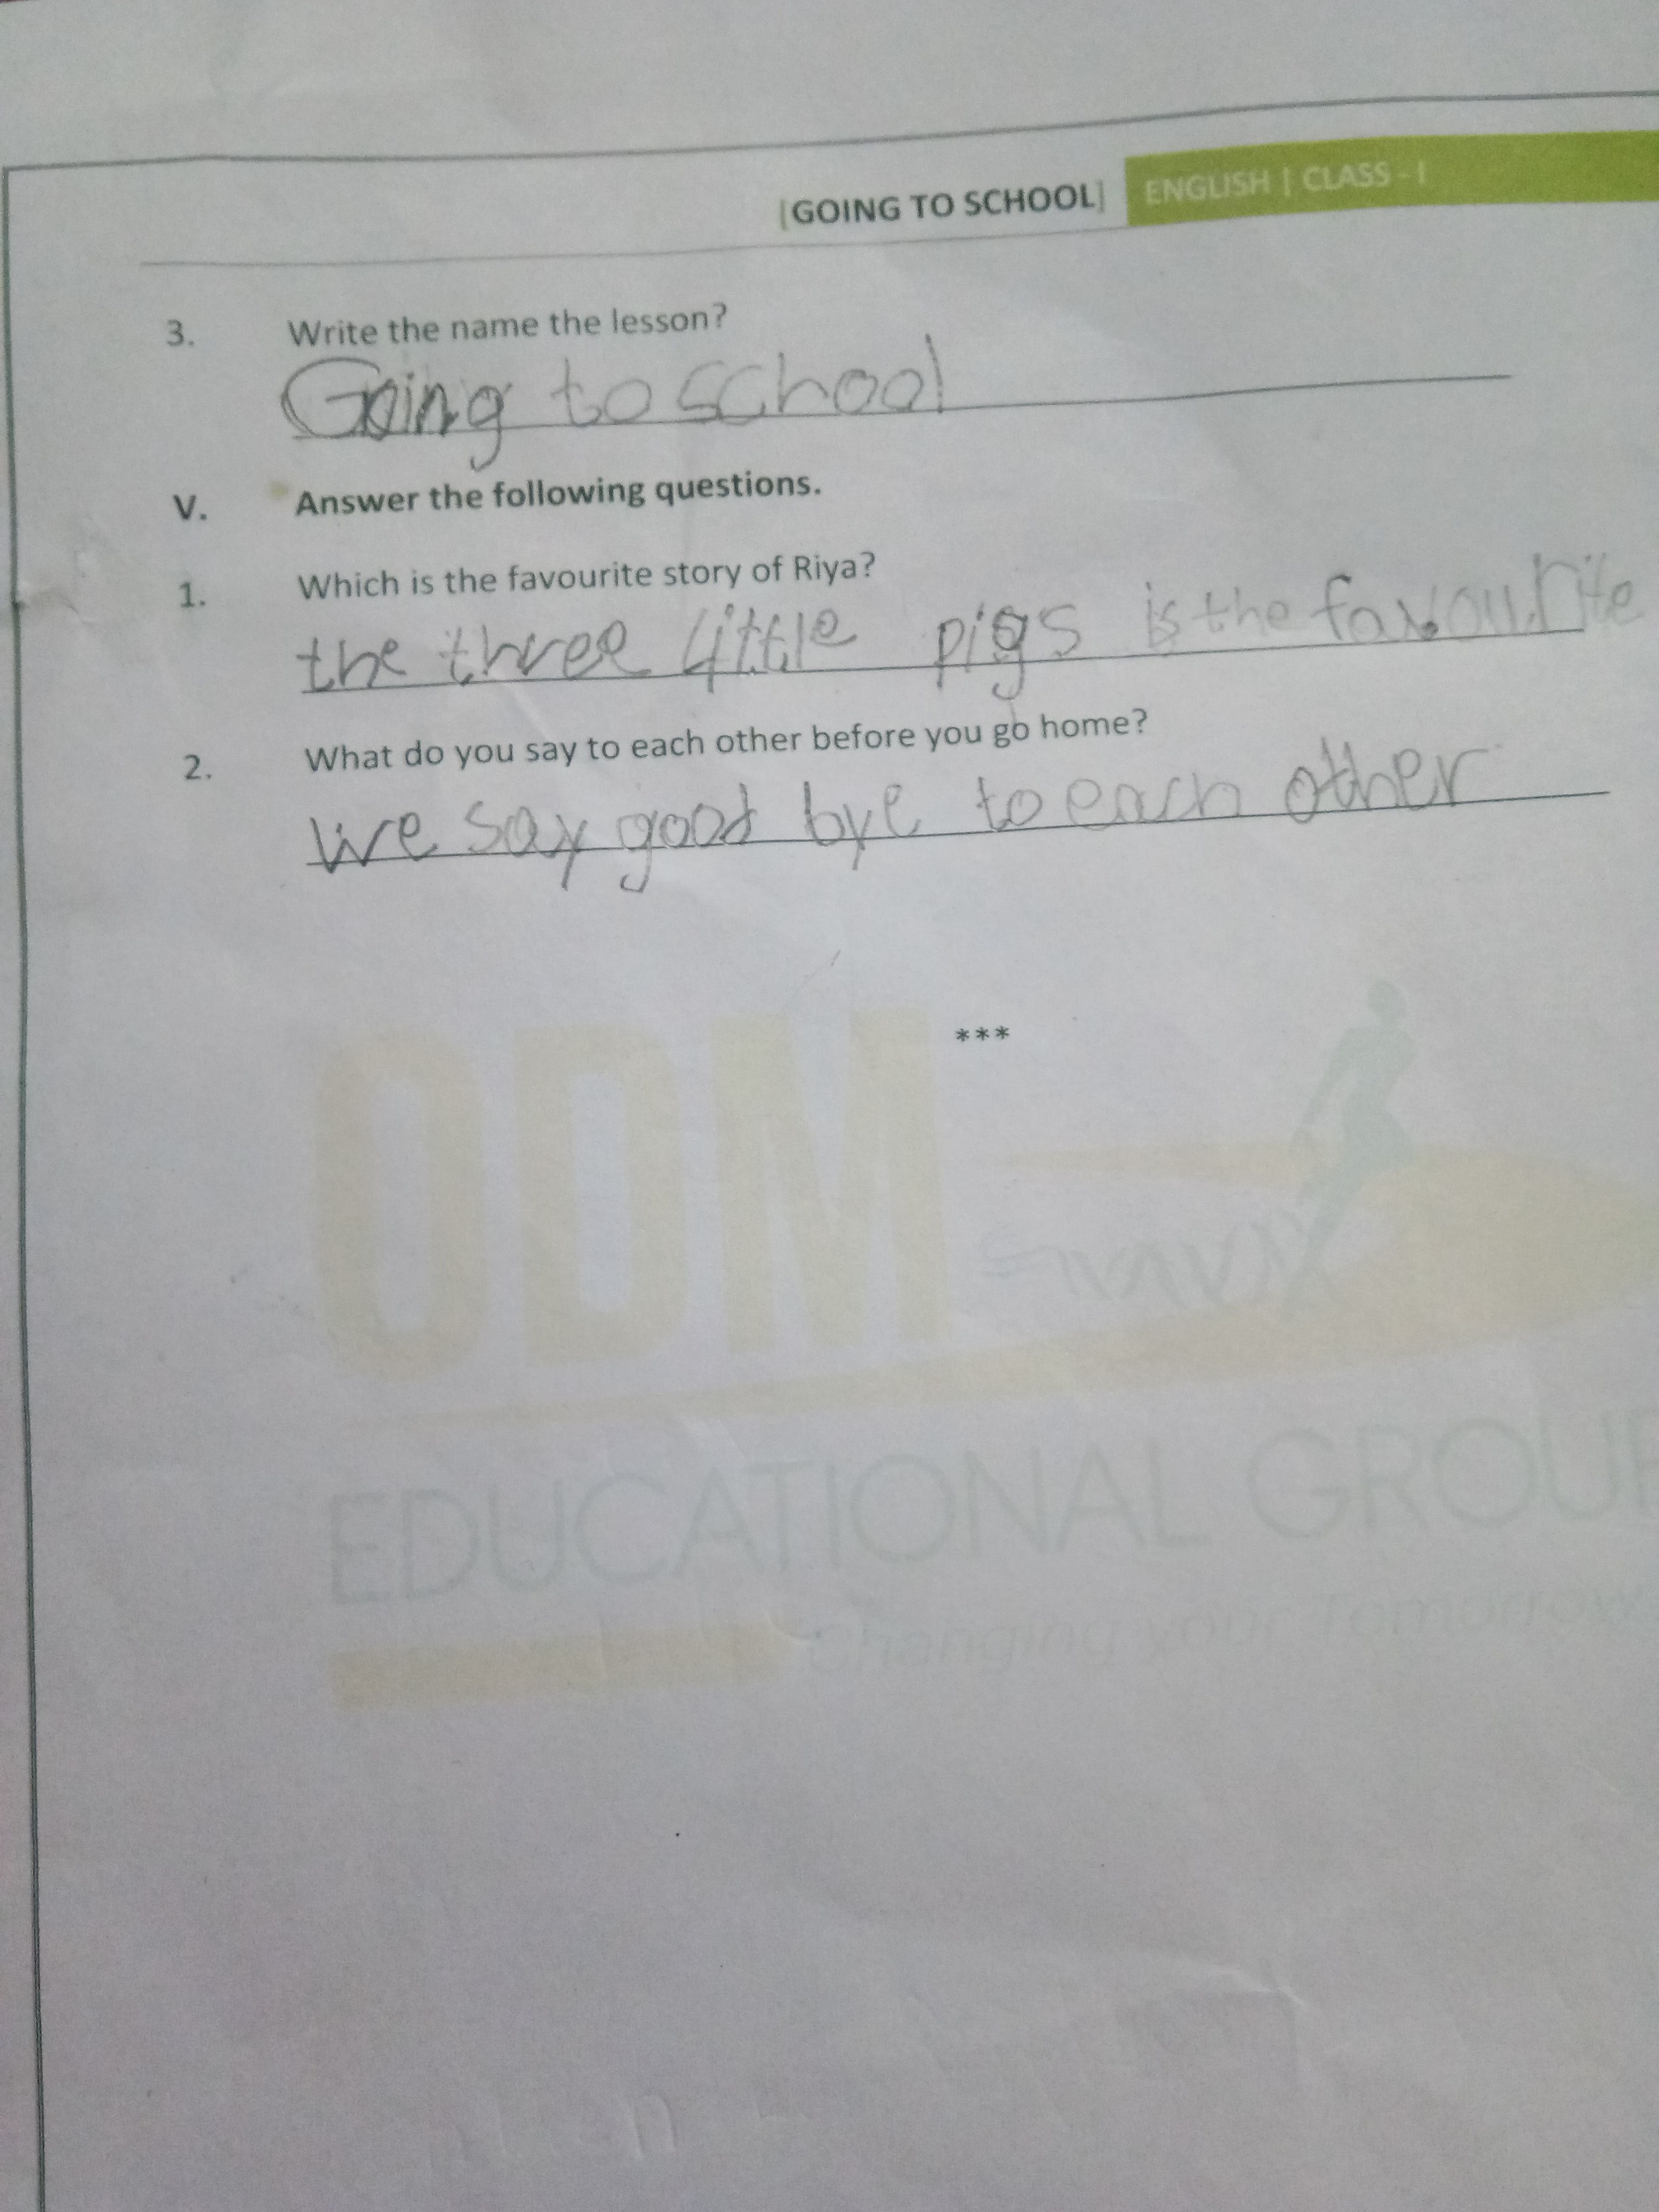 [GOING TO SCHOOL] ENGLISH | CLASS - I
3. Write the name the lesson?
Going to school
V. Answer the following questions.
1. Which is the favourite story of Riya?
the three little pigs is the favourite
2. What do you say to each other before you go home?
We say good bye to each other
***
ODM
EDUCATIONAL GROUP
Changing your Tomorrow